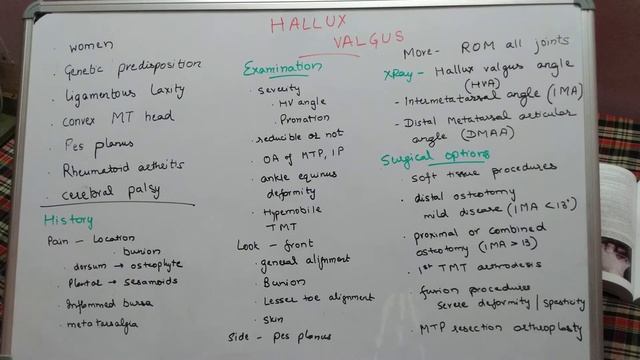 HALLUX
VALGUS
. women
. Genetic predisposition
. Ligamentous Laxity
. convex MT head
. Pes planus
. Rheumatoid arthritis
. cerebral palsy
History
Pain - Location
. bunion
. dorsum → osteophyte
. Plantar → sesamoids
. Inflammed bursa
. metatarsalgia
Examination
. severity
. HV angle
. Pronation
. reducible or not
. OA of MTP, IP
. ankle equinus
deformity
. Hypermobile
TMT
Look - front
. general alignment
. Bunion
. Lesser toe alignment
. skin
Side - pes planus
More - ROM all joints
XRay - Hallux valgus angle
(HVA)
- Intermetatarsal angle (IMA)
- Distal Metatarsal articular
angle (DMAA)
Surgical options
. soft tissue procedures
. distal osteotomy
mild disease (IMA < 13°)
. proximal or combined
osteotomy (IMA > 13)
. 1st TMT arthrodesis
. fusion procedures
severe deformity / spasticity
. MTP resection arthroplasty